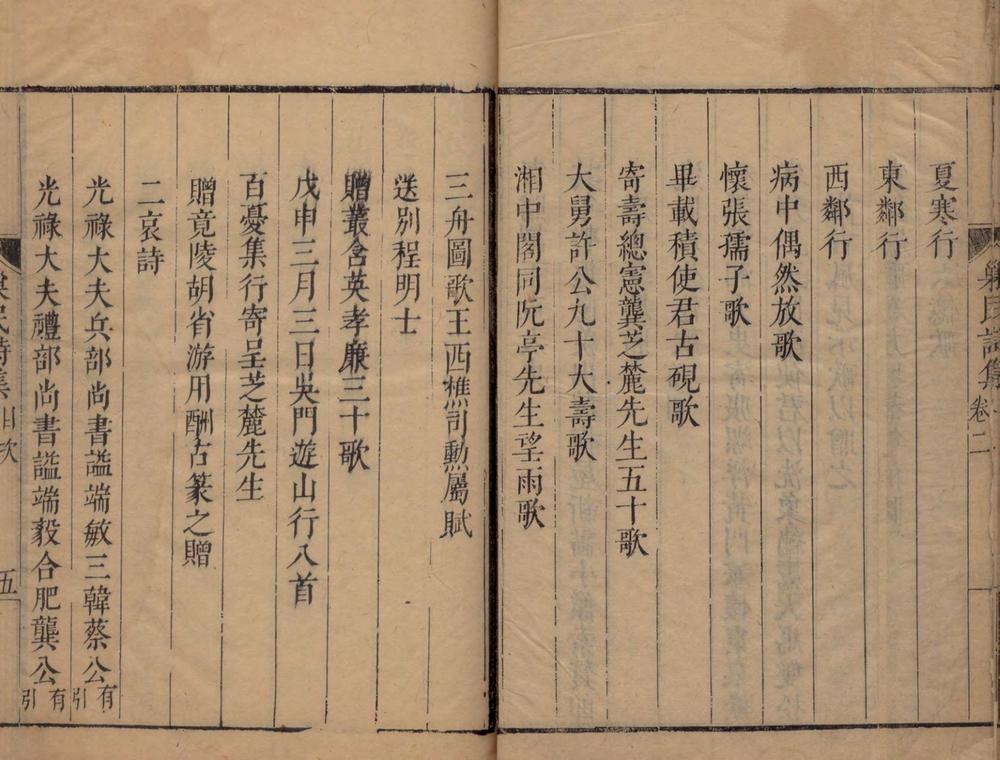 夏寒行
東鄰行
西鄰行
病中偶然放歌
懷張孺子歌
畢載積使君古硯歌
寄壽總憲龔芝麓先生五十歌
大舅許公九十大壽歌
湘中閣同阮亭先生望雨歌
三舟圖歌王西樵司勳屬賦
送別程明士
贈叢含英孝廉三十歌
戊申三月三日吳門遊山行八首
百憂集行寄呈芝麓先生
贈竟陵胡省游用酬古篆之贈
二哀詩
光祿大夫兵部尚書謚端敏三韓蔡公有引
光祿大夫禮部尚書謚端毅合肥龔公有引
巢民詩集 目次 五
巢民詩集 卷二